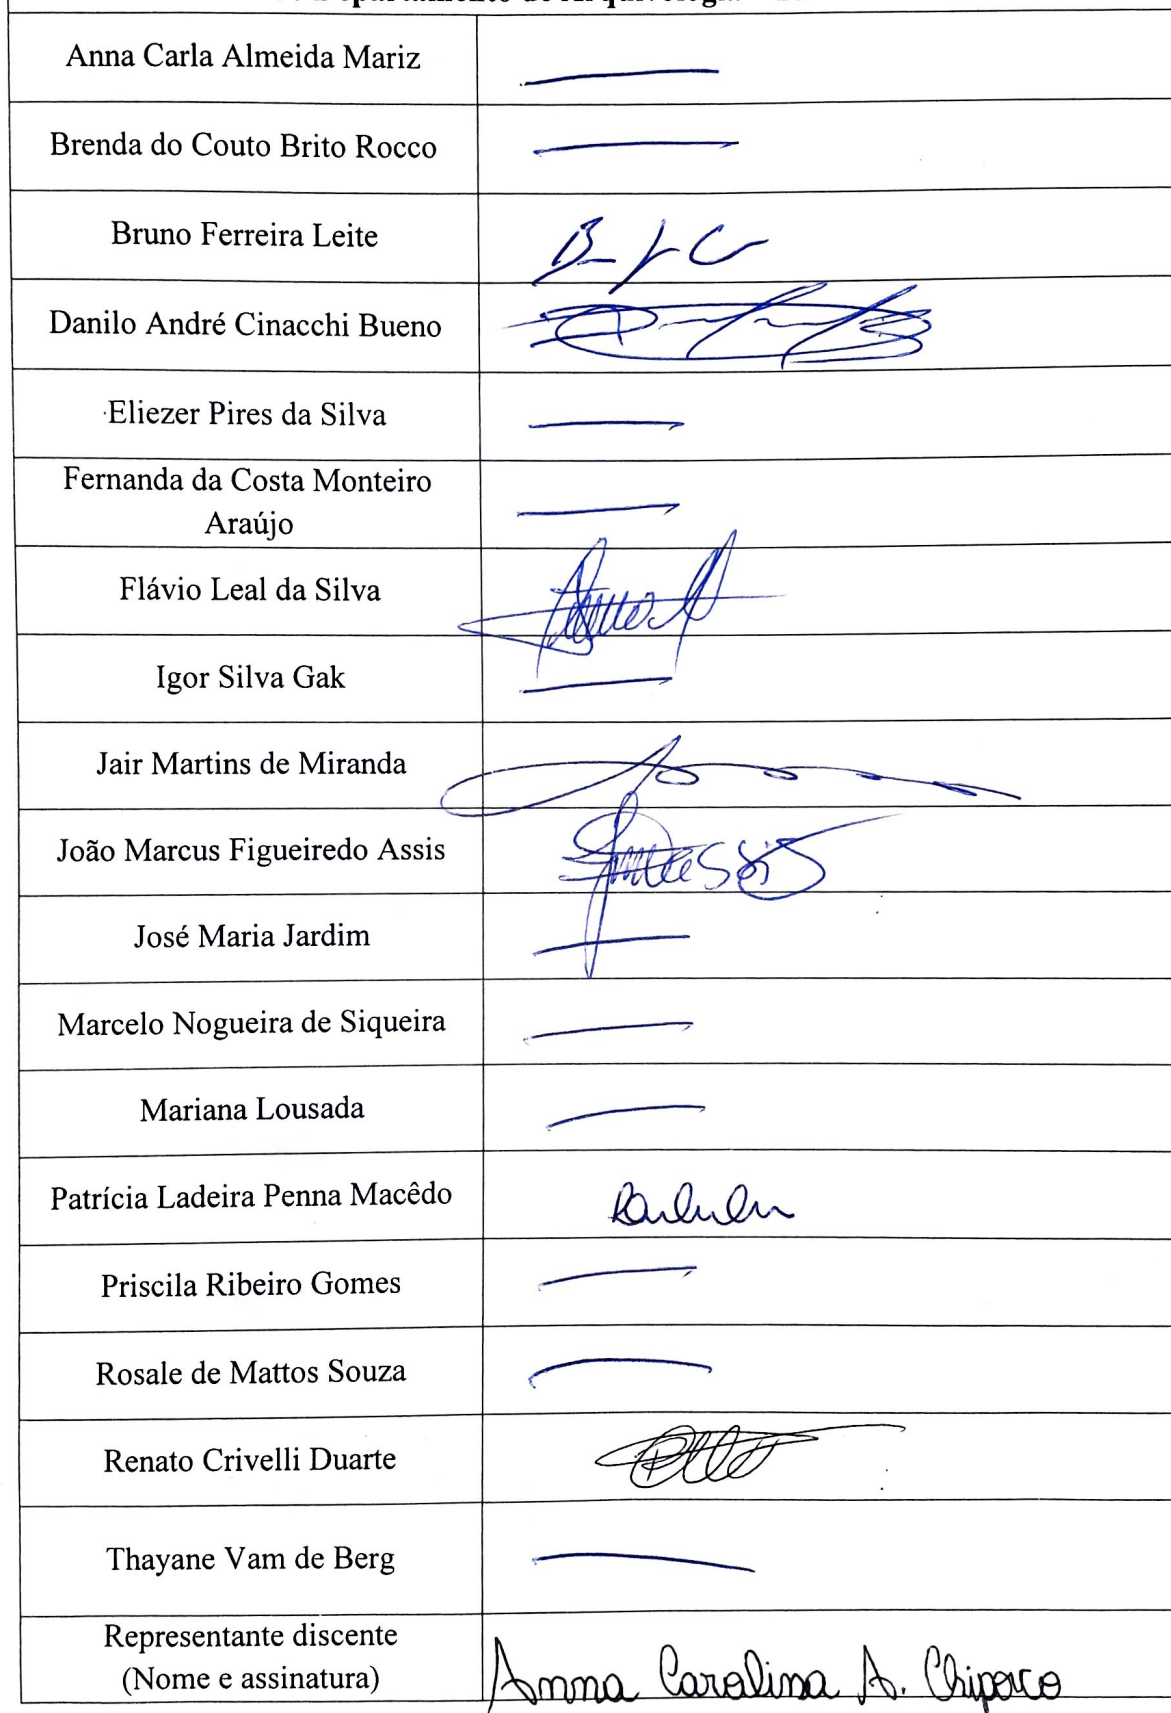 Departamento de Arquivologia
Anna Carla Almeida Mariz
Brenda do Couto Brito Rocco
Bruno Ferreira Leite
Danilo André Cinacchi Bueno
Eliezer Pires da Silva
Fernanda da Costa Monteiro
Araújo
Flávio Leal da Silva
Igor Silva Gak
Jair Martins de Miranda
João Marcus Figueiredo Assis
José Maria Jardim
Marcelo Nogueira de Siqueira
Mariana Lousada
Patrícia Ladeira Penna Macêdo
Priscila Ribeiro Gomes
Rosale de Mattos Souza
Renato Crivelli Duarte
Thayane Vam de Berg
Representante discente
(Nome e assinatura)
Anna Carolina A.